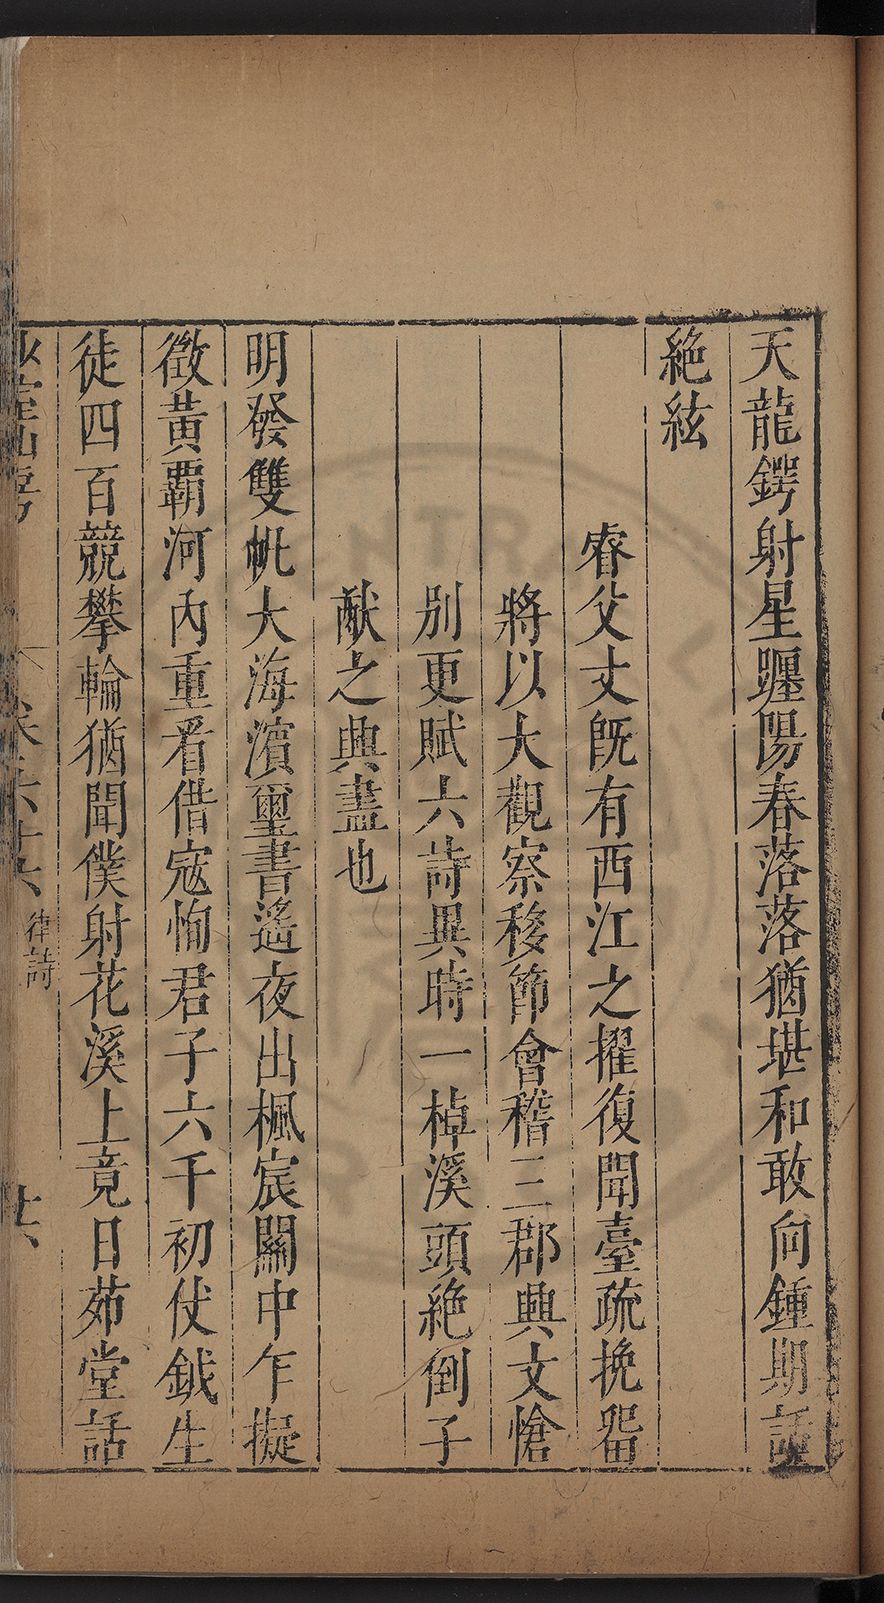 天龍鍔射星躔陽春落落猶堪和敢向鍾期話
絶絃
睿父丈旣有西江之擢復聞臺疏挽畱
將以大觀察移節會稽三郡興文愴
别更賦六詩異時一棹溪頭絶倒子
猷之興盡也
明發雙帆大海濱璽書遙夜出楓宸關中乍擬
徵黃霸河內重看借寇恂君子六千初仗鉞生
徒四百競攀輪猶聞僕射花溪上竟日茆堂話
少室山房
卷六十六
律詩
廿六